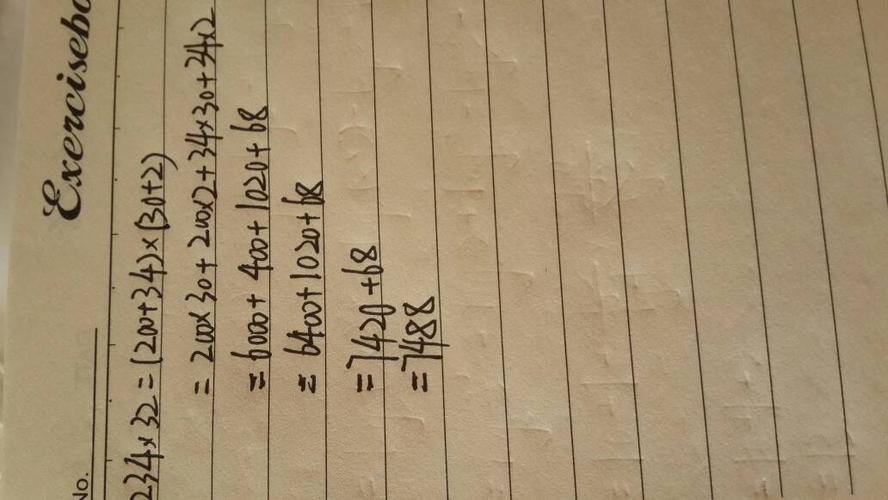 Exercisebo
No.
234×32=(200+34)×(30+2)
=200×30+200×2+34×30+34×2
=6000+400+1020+68
=6400+1020+68
=7420+68
=7488